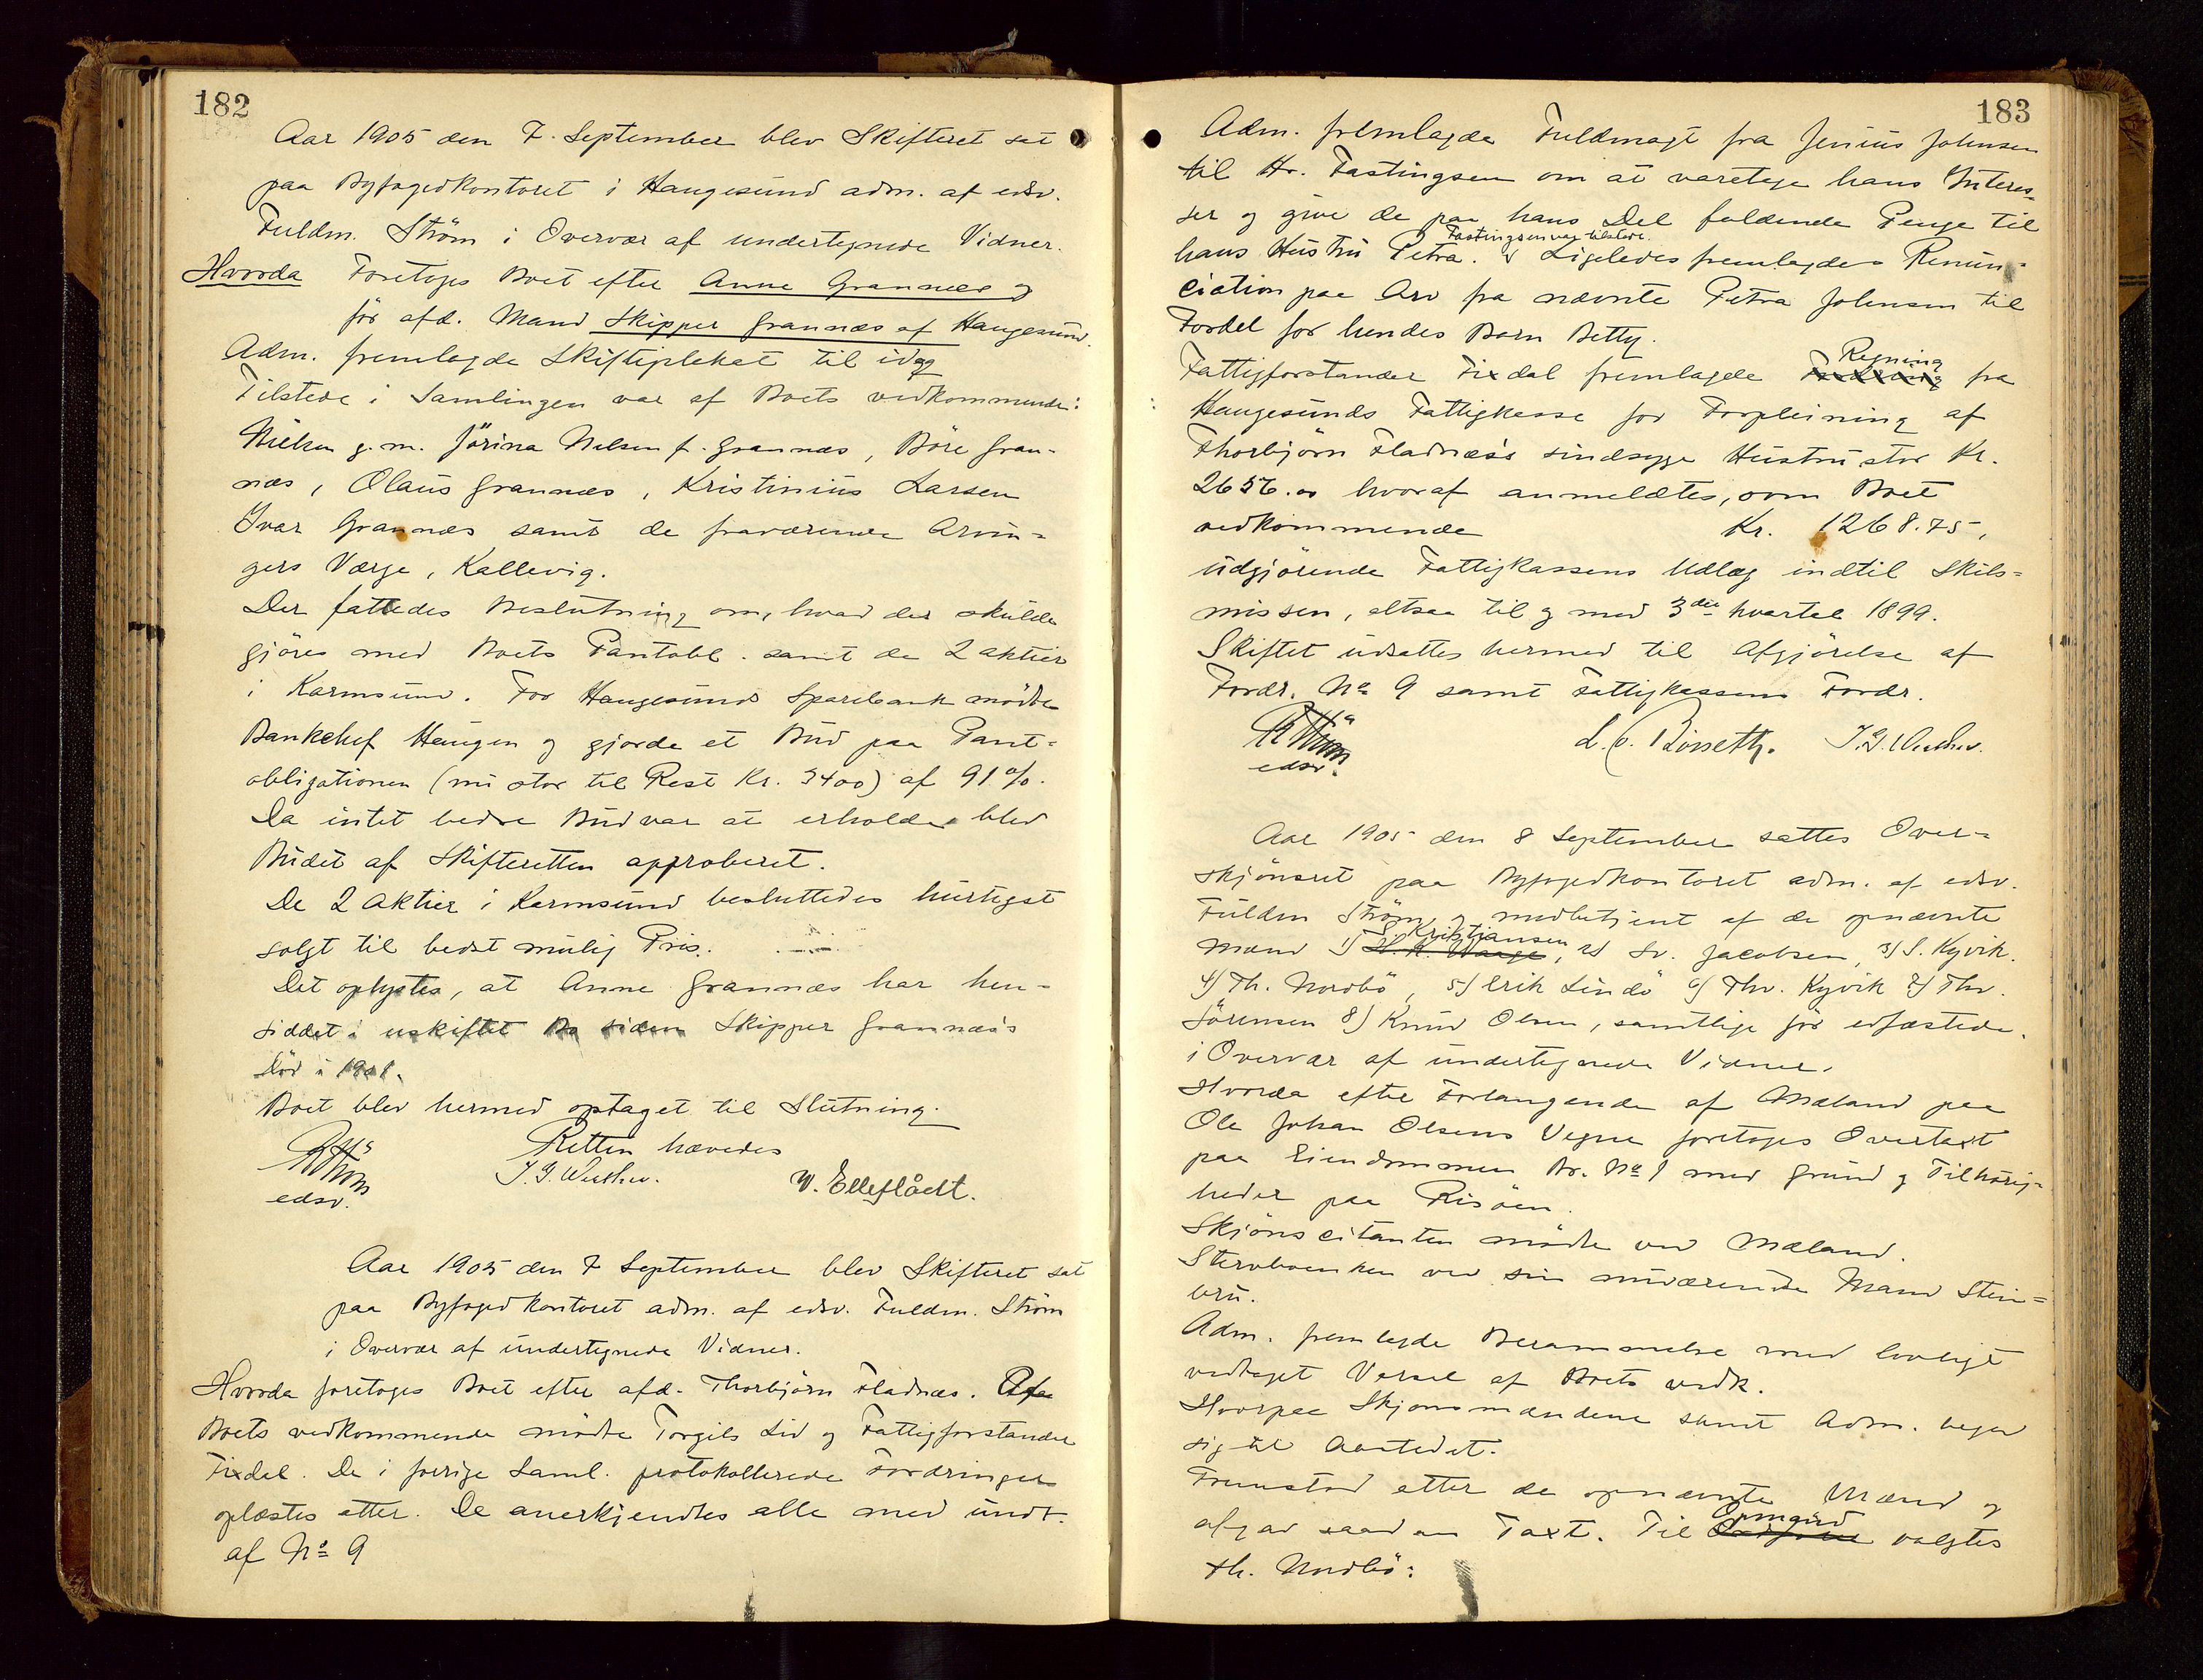 182
Aar 1905 den 7. September blev Skifteret sat
paa Byfogedkontoret i Haugesund adm. af edsv.
Fuldm. Ström i Overvær af undertegnede Vidner.
Hvorda Foretoges Boet efter Anne Grannæs og
før afd. Mand Skipper Grannæs af Haugesund.
Adm. fremlagde Skifteplakat til idag
Tilstede i Samlingen var af Boets vedkommende:
Nielsen g.m. Jörina Nelsen f. Grannæs, Böre Gran-
næs, Olaus Grannæs, Kristinius Larsen
Ivar Grannæs samt de fraværende Arvin-
gers Værge, Kallevig.
Der fattedes Beslutning om, hvad der skulde
gjöres med Boets Pantobl. samt de 2 aktier
i Karmsund. For Haugesunds Sparebank mödte
Bankchef Haugen og gjorde et Bud paa Pant-
obligationen (nu stor til Rest Kr. 3400) af 91%.
Da intet bedre Bud var at erholde blev
Budet af Skifteretten approberet.
De 2 Aktier i Karmsund besluttedes hurtigst
solgt til bedst mulig Pris.
Det oplystes, at Anne Grannæs har hen-
siddet i uskiftet Bo siden Skipper Grannæs's
Död i 1901.
Boet blev hermed optaget til Slutning.
Retten hævedes
RStröm
edsv.
J. G. Wuthev.
W. Elleflådt.
Aar 1905 den 7 September blev Skifteret sat
paa Byfogedkontoret adm. af edsv. Fuldm. Ström
i Overvær af undertegnede Vidner.
Hvorda foretoges Boet efter afd. Thorbjörn Fladnæs. Afæ
Boets vedkommende mödte Torgils Lid og Fattigforstander
Fixdal. De i forrige Saml. protokollerede Fordringer
oplæstes etter. De anerkjendtes alle med undt.
af No 9
183
Adm. fremlagde Fuldmagt fra Junius Johnsen
til Hr. Fastingsen om at varetage hans Interes-
ser og give de paa hans Del faldende Penge til
Fastingsen var tilstede.
hans Hustru Petra. Ligeledes fremlagdes Renun-
ciation paa Arv fra nævnte Petra Johnsen til
Fordel for hendes Barn Betty.
Regning
Fattigforstander Fixdal fremlagde Fordring fra
Haugesunds Fattigkasse for Forpleining af
Thorbjörn Fladnæs's sindsyge Hustru stor Kr.
2656.00 hvoraf anmeldtes, som Boet
vedkommende Kr. 1268.75,
udgjörende Fattigkassens Udlæg indtil Skils-
missen, altsaa til og med 3die kvartal 1899.
Skiftet udsattes hermed til Afgjörelse af
Fordr. No 9 samt Fattigkassens Fordr.
RStröm
edsv.
J. G. Wuthev.
Aar 1905 den 8 September sattes Over-
skjönsret paa Byfogedkontoret adm. af edsv.
Fuldm Ström og medbetjent af de opnævnte
Kristiansen
Mænd 1) H. A. Waage, 2) Sv. Jacobsen, 3) S. Kyvik.
4) Th. Nordbö, 5) Erik Lindö 6) Thv. Kyvik 7) Thv.
Sörensen 8) Knud Olsen, samtlige för edfæstede.
i Overvær af undertegnede Vidner.
Hvorda efter Forlangende af Mæland paa
Ole Johan Olsens Vegne foretoges Overtaxt
paa Eiendommen Br. No 1 med Grund og Tilhörig-
heder paa Risöen.
Skjönscitanten mödte ved Mæland.
Stervboenken ved sin nuværende Mand Stein-
bru.
Adm. fremlagde Berammelse med lovligt
vedtaget Varsel af Boets vedk.
Hvorpaa Skjönsmændene samt Adm. begav
sig til Aastedet.
Fremstod etter de opnævnte Mænd og
Opmand
afgav saadan Taxt. Til valgtes
Th. Nordbö: